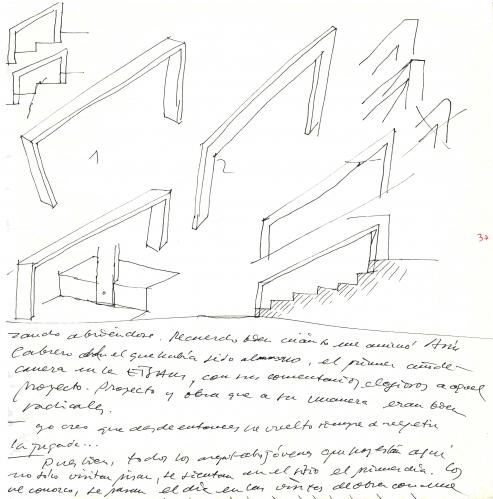 1
2
37
zando abriéndose. Recuerdo bien cuánto me animó
Cabrero del que había sido alumno, el primer año de
carrera en la ETSAM, con sus comentarios elogiosos a aquel
proyecto. Proyecto y obra que a su manera eran bien
radicales.
— yo creo que desde entonces he vuelto siempre a repetir
la jugada...
— Pues bien, todos los arquitectos jóvenes que hoy están aquí, los
no sólo visitan, se sientan en el sitio el primer día. Los
se conocen, se pasan el día en las visitas de obra con una